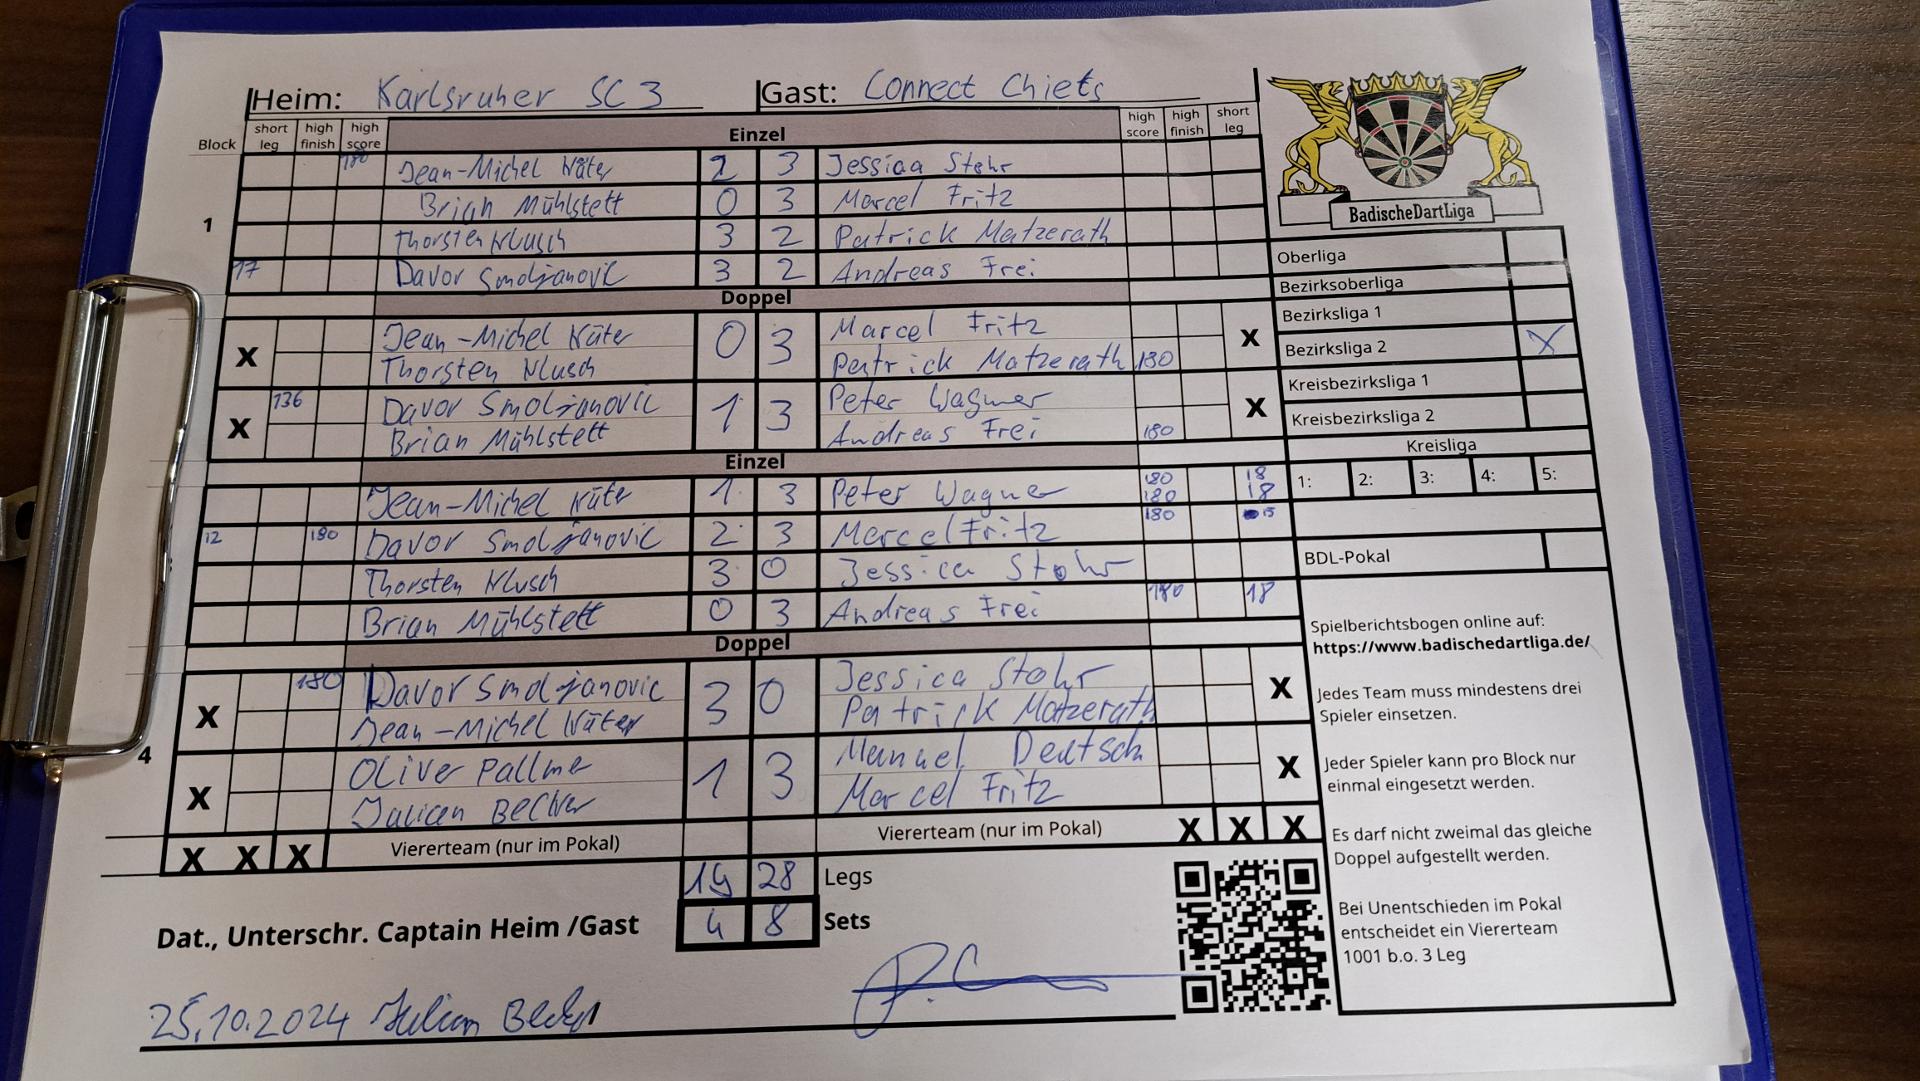 Heim: Karlsruher SC 3 Gast: Connect Chiefs
Block short leg high finish high score Einzel high score high finish short leg
180 Jean-Michel Käter 2 3 Jessica Stohr
Brian Mühlstett 0 3 Marcel Fritz
1 Thorsten Klusch 3 2 Patrick Matzerath
17 Davor Smoljanovic 3 2 Andreas Frei
Doppel
X Jean-Michel Käter 0 3 Marcel Fritz X
Thorsten Klusch Patrick Matzerath 180
X 136 Davor Smoljanovic 1 3 Peter Wagner X
Brian Mühlstett Andreas Frei 180
Einzel
Jean-Michel Käter 1 3 Peter Wagner 180 180 18 18
12 180 Davor Smoljanovic 2 3 Marcel Fritz 180 15
Thorsten Klusch 3 0 Jessica Stohr
Brian Mühlstett 0 3 Andreas Frei 180 18
Doppel
X 180 Davor Smoljanovic 3 0 Jessica Stohr X
Jean-Michel Käter Patrick Matzerath
4
X Oliver Pallme 1 3 Manuel Deutsch X
Julian Becker Marcel Fritz
X X X Viererteam (nur im Pokal) Viererteam (nur im Pokal) X X X
19 28 Legs
Dat., Unterschr. Captain Heim /Gast 4 8 Sets
25.10.2024 Julian Becker
BadischeDartLiga
Oberliga
Bezirksoberliga
Bezirksliga 1
Bezirksliga 2 X
Kreisbezirksliga 1
Kreisbezirksliga 2
Kreisliga
1: 2: 3: 4: 5:
BDL-Pokal
Spielberichtsbogen online auf:
https://www.badischedartliga.de/
Jedes Team muss mindestens drei
Spieler einsetzen.
Jeder Spieler kann pro Block nur
einmal eingesetzt werden.
Es darf nicht zweimal das gleiche
Doppel aufgestellt werden.
Bei Unentschieden im Pokal
entscheidet ein Viererteam
1001 b.o. 3 Leg